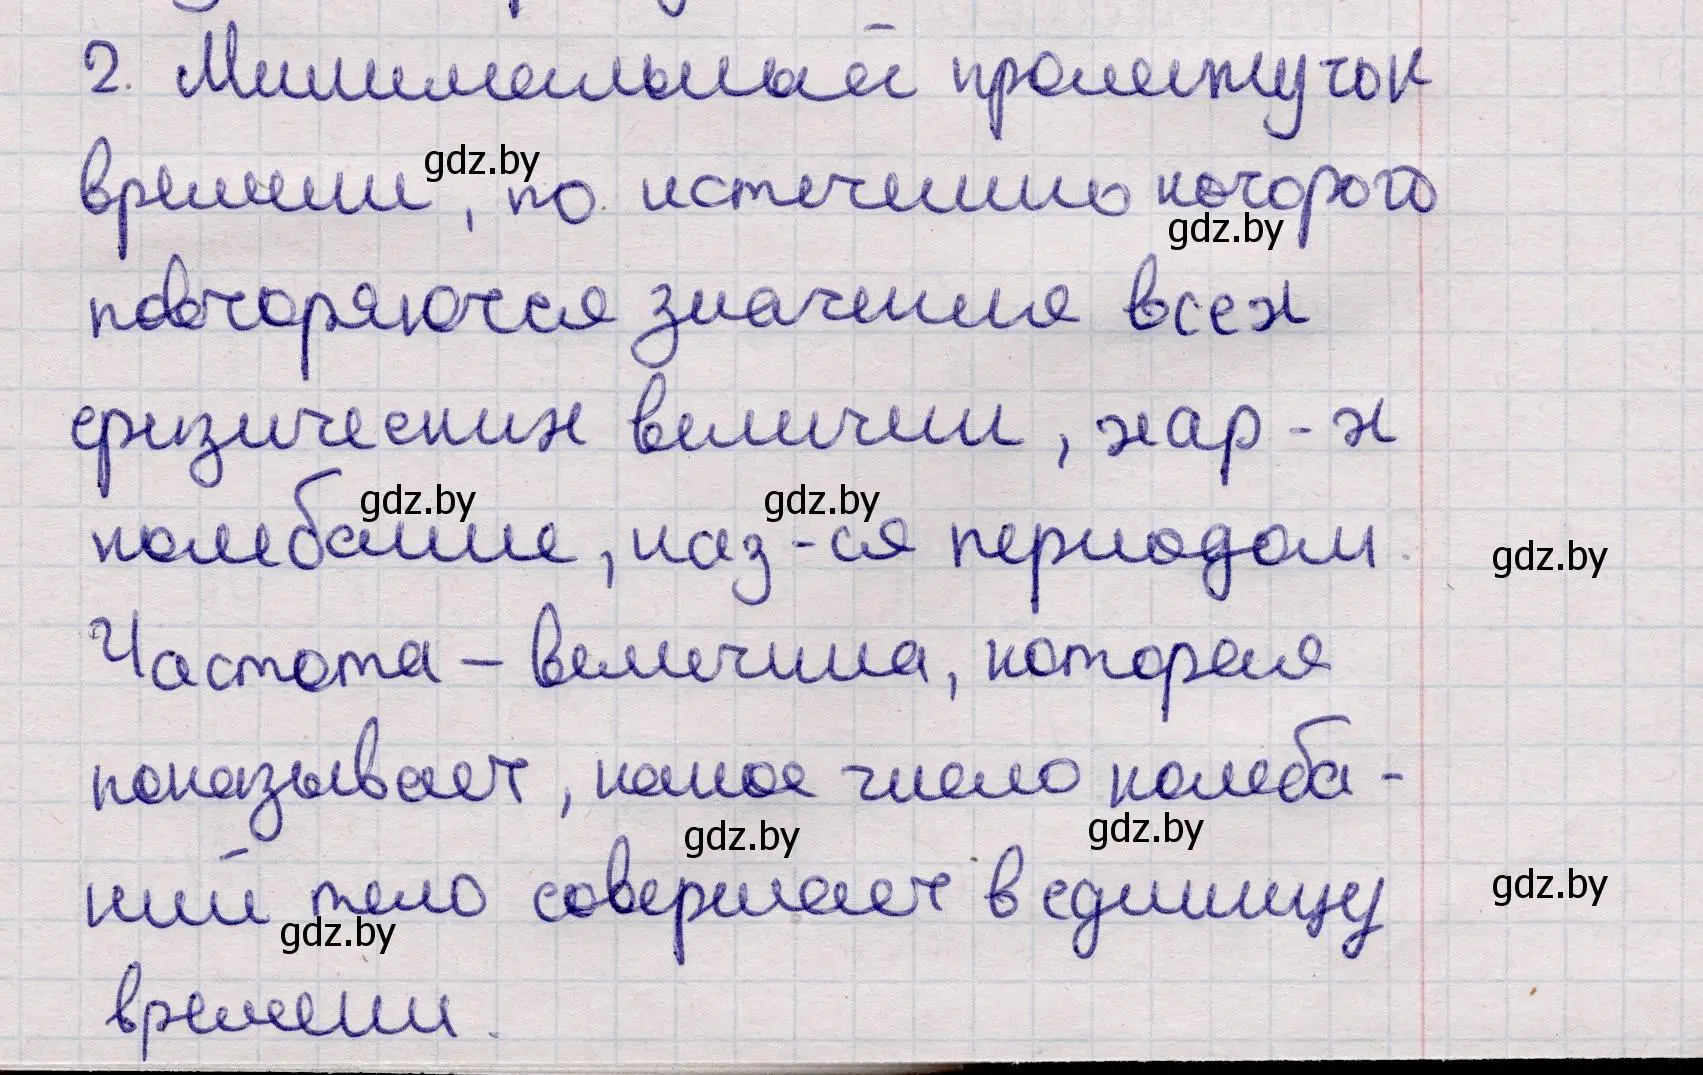 2. Минимальный промежуток
времени, по истечению которого
gdz.by
gdz.by
повторяются значения всех
физических величин, хар-х
gdz.by
gdz.by
колебание, наз-ся периодом.
gdz.by
Частота – величина, которая
показывает, какое число колеба-
gdz.by
gdz.by
ний тело совершает в единицу
gdz.by
gdz.by
времени.